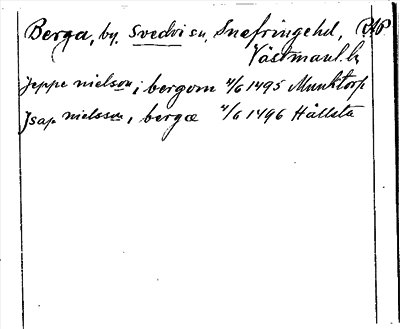 Berga, by. Svedvi sn, Snefringehd, RAP
Västmanl. ln
Jeppe nielson, i bergom 4/6 1495 Munktorp
Jsap nielsson, i bergæ 4/6 1496 Hällsta